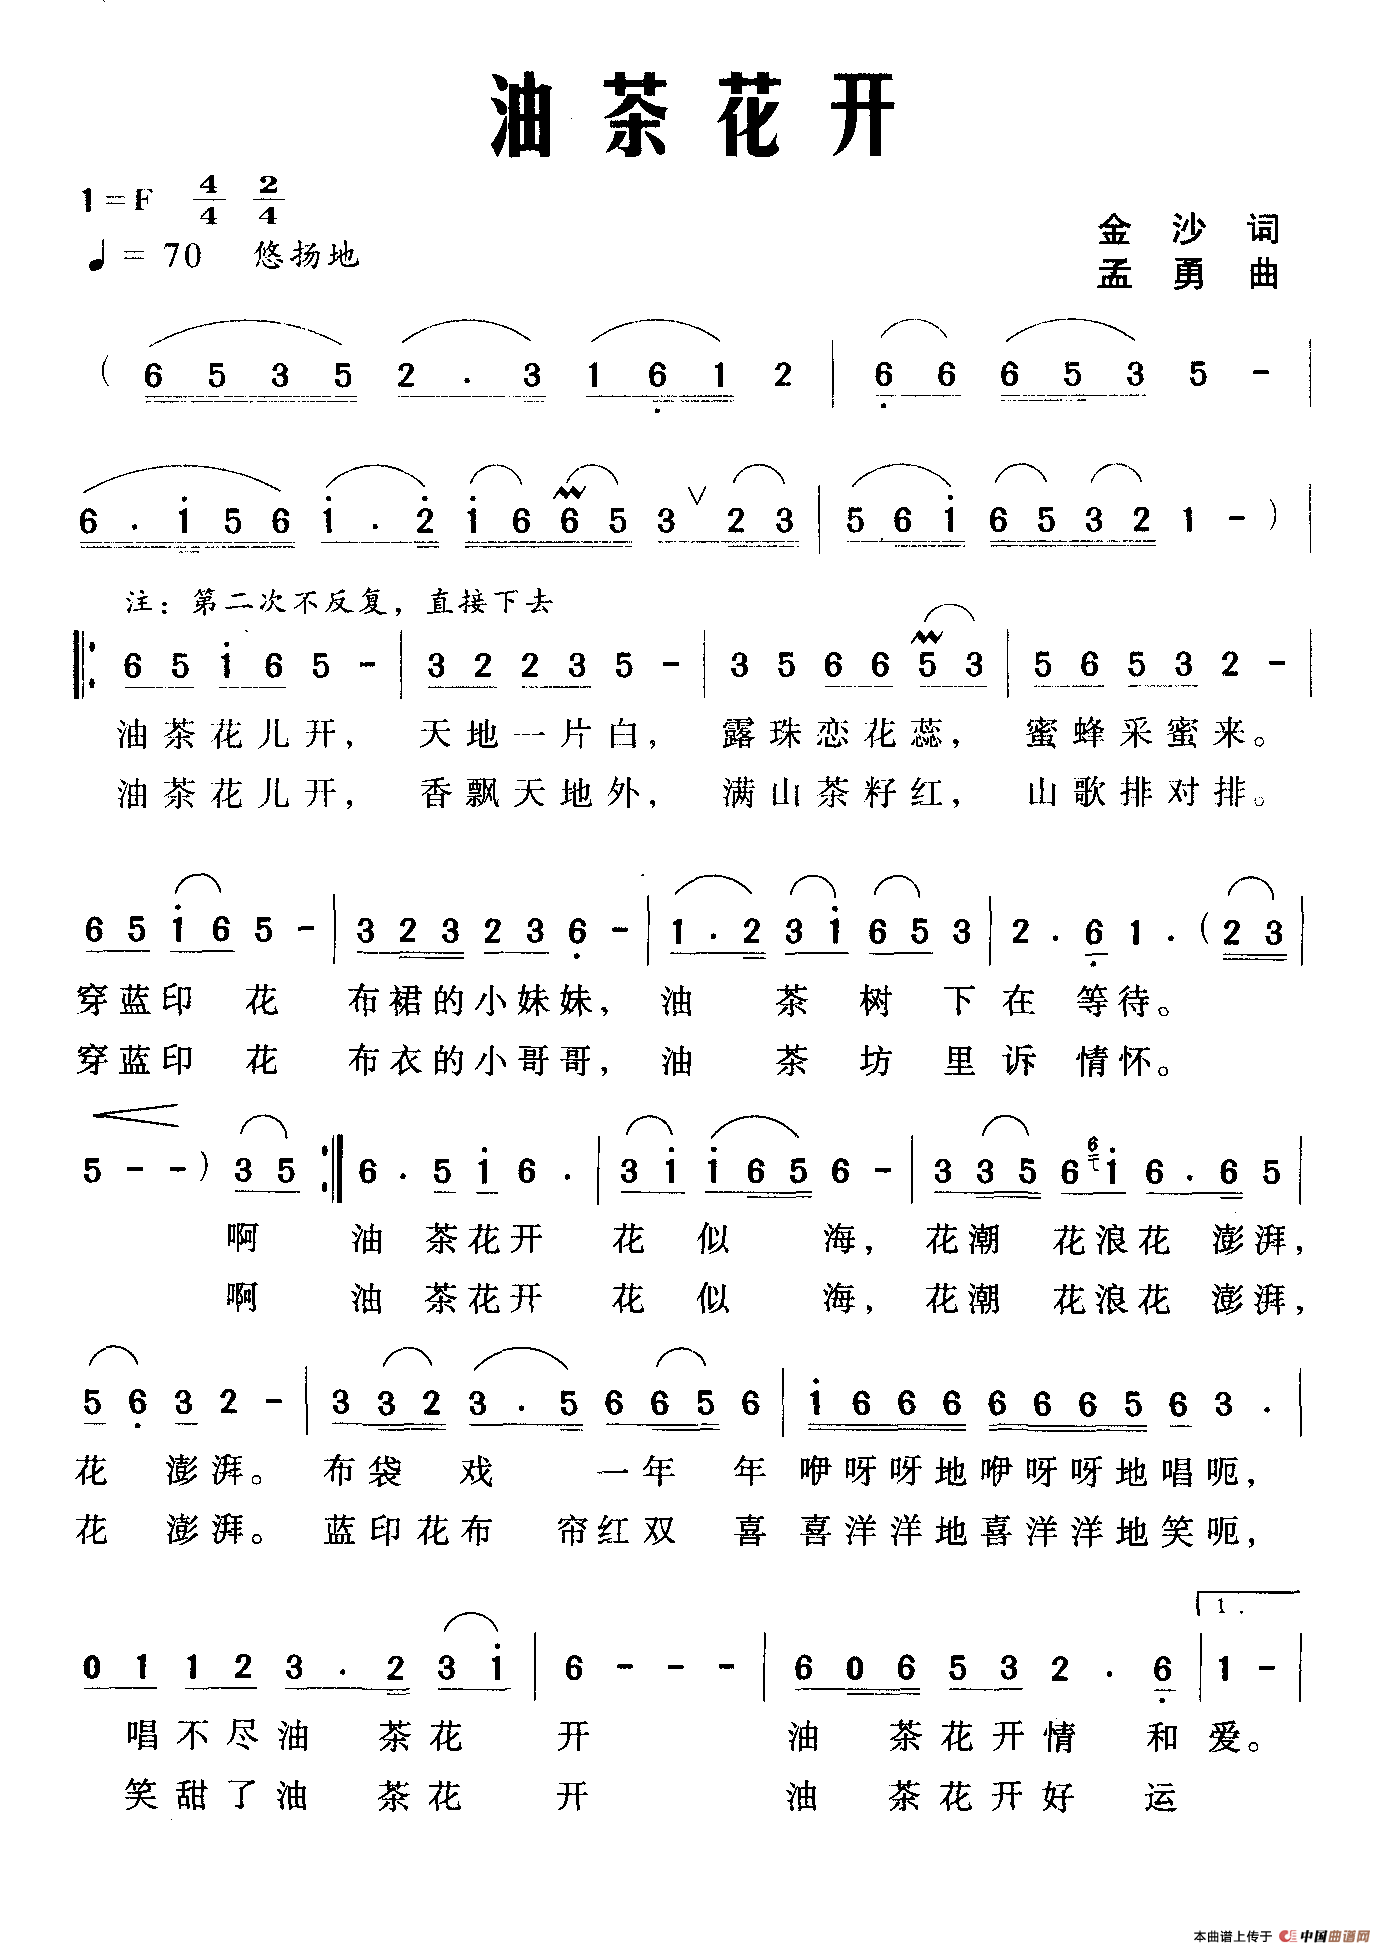 油茶花开
1=F 4/4 2/4
♩= 70 悠扬地
金沙词
孟勇曲
( 6 5 3 5 2 . 3 1 6̣ 1 2 | 6̣ 6 6 5 3 5 - |
6 . i 5 6 i . 2̇ i 6 6 5 3 ∨ 2 3 | 5 6 i 6 5 3 2 1 - ) |
注：第二次不反复，直接下去
‖: 6 5 i 6 5 - | 3 2 2 3 5 - | 3 5 6 6 5 3 | 5 6 5 3 2 - |
油茶花儿开，天地一片白，露珠恋花蕊，蜜蜂采蜜来。
油茶花儿开，香飘天地外，满山茶籽红，山歌排对排。
6 5 i 6 5 - | 3 2 3 2 3 6̣ - | 1 . 2 3 i 6 5 3 | 2 . 6̣ 1 . ( 2 3 |
穿蓝印花布裙的小妹妹，油茶树下在等待。
穿蓝印花布衣的小哥哥，油茶坊里诉情怀。
5 - - ) 3 5 :‖ 6 . 5 i 6 . | 3 i i 6 5 6 - | 3 3 5 6 6 i 6 . 6 5 |
啊油茶花开花似海，花潮花浪花澎湃，
啊油茶花开花似海，花潮花浪花澎湃，
5 6̣ 3 2 - | 3 3 2 3 . 5 6 6 5 6 | i 6 6 6 6 6 6 5 6 3 . |
花澎湃。布袋戏一年年咿呀呀地咿呀呀地唱呃，
花澎湃。蓝印花布帘红双喜喜洋洋地喜洋洋地笑呃，
0 1 1 2 3 . 2 3 i | 6 - - - | 6 0 6 5 3 2 . 6̣ | 1. 1 - |
唱不尽油茶花开油茶花开情和爱。
笑甜了油茶花开油茶花开好运
本曲谱上传于 中国曲谱网